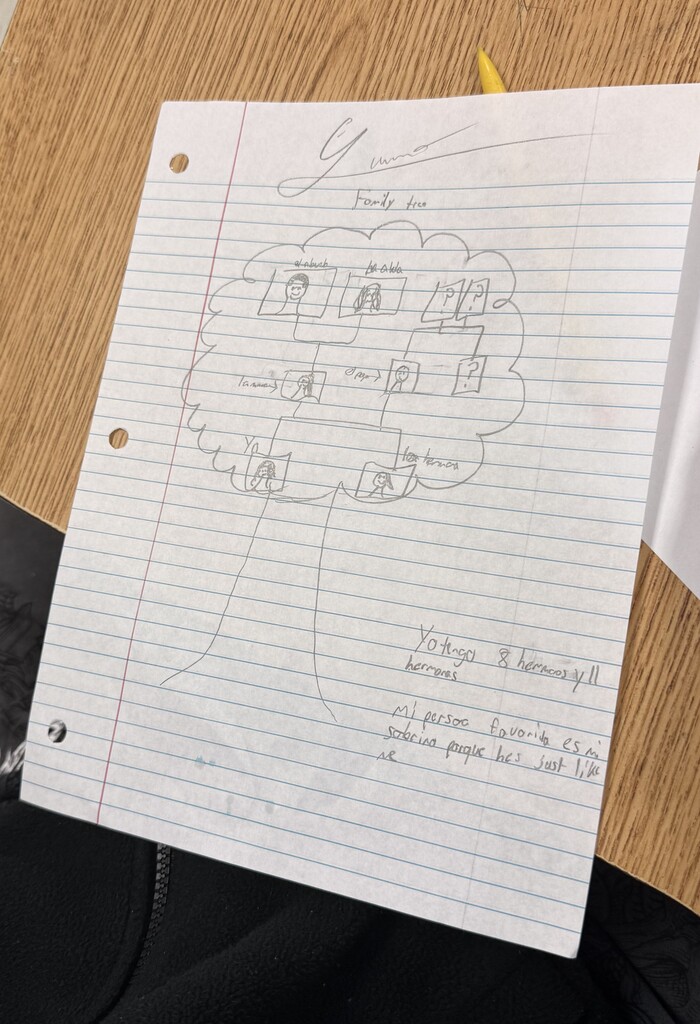 Family tree
el abuelo
la abuela
? ?
la mama
el papa
?
Yo
Yo tengo 8 hermanos y 11
hermanas
Mi persoa favorita es mi
sobrino porque hes just like
me